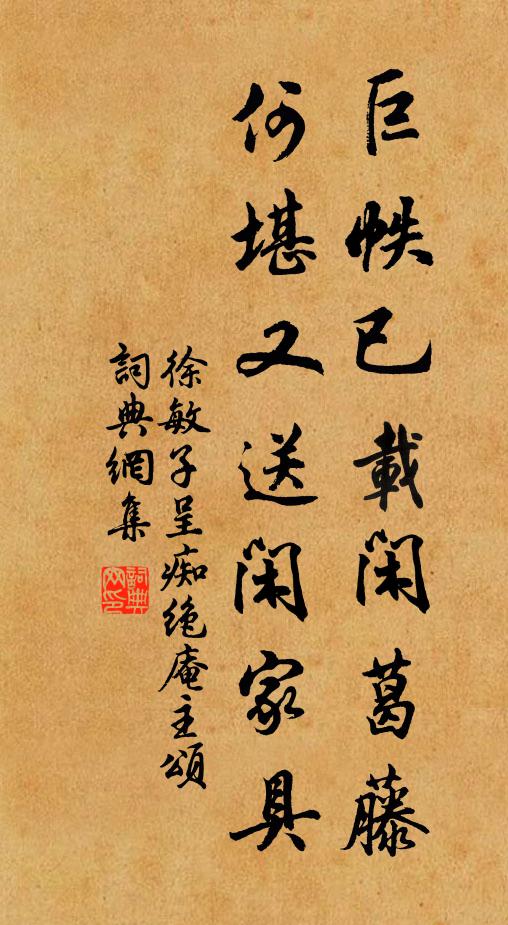 巨帙已載閑葛藤
何堪又送閑家具
徐敏子呈痴絶庵主頌
詞典網集
詞典
网印